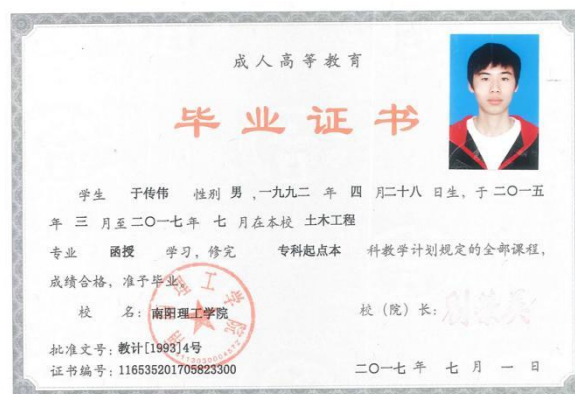 成人高等教育
毕业证书
学生 于传伟 性别 男，一九九二 年 四 月二十八 日生，于 二〇一五
年 三 月至二〇一七年 七 月在本校 土木工程
专业 函授 学习，修完 专科起点本 科教学计划规定的全部课程，
成绩合格，准予毕业。
校 名：南阳理工学院
校（院）长：
批准文号：教计[1993]4号
证书编号：116535201705823300
二〇一七 年 七 月 一 日